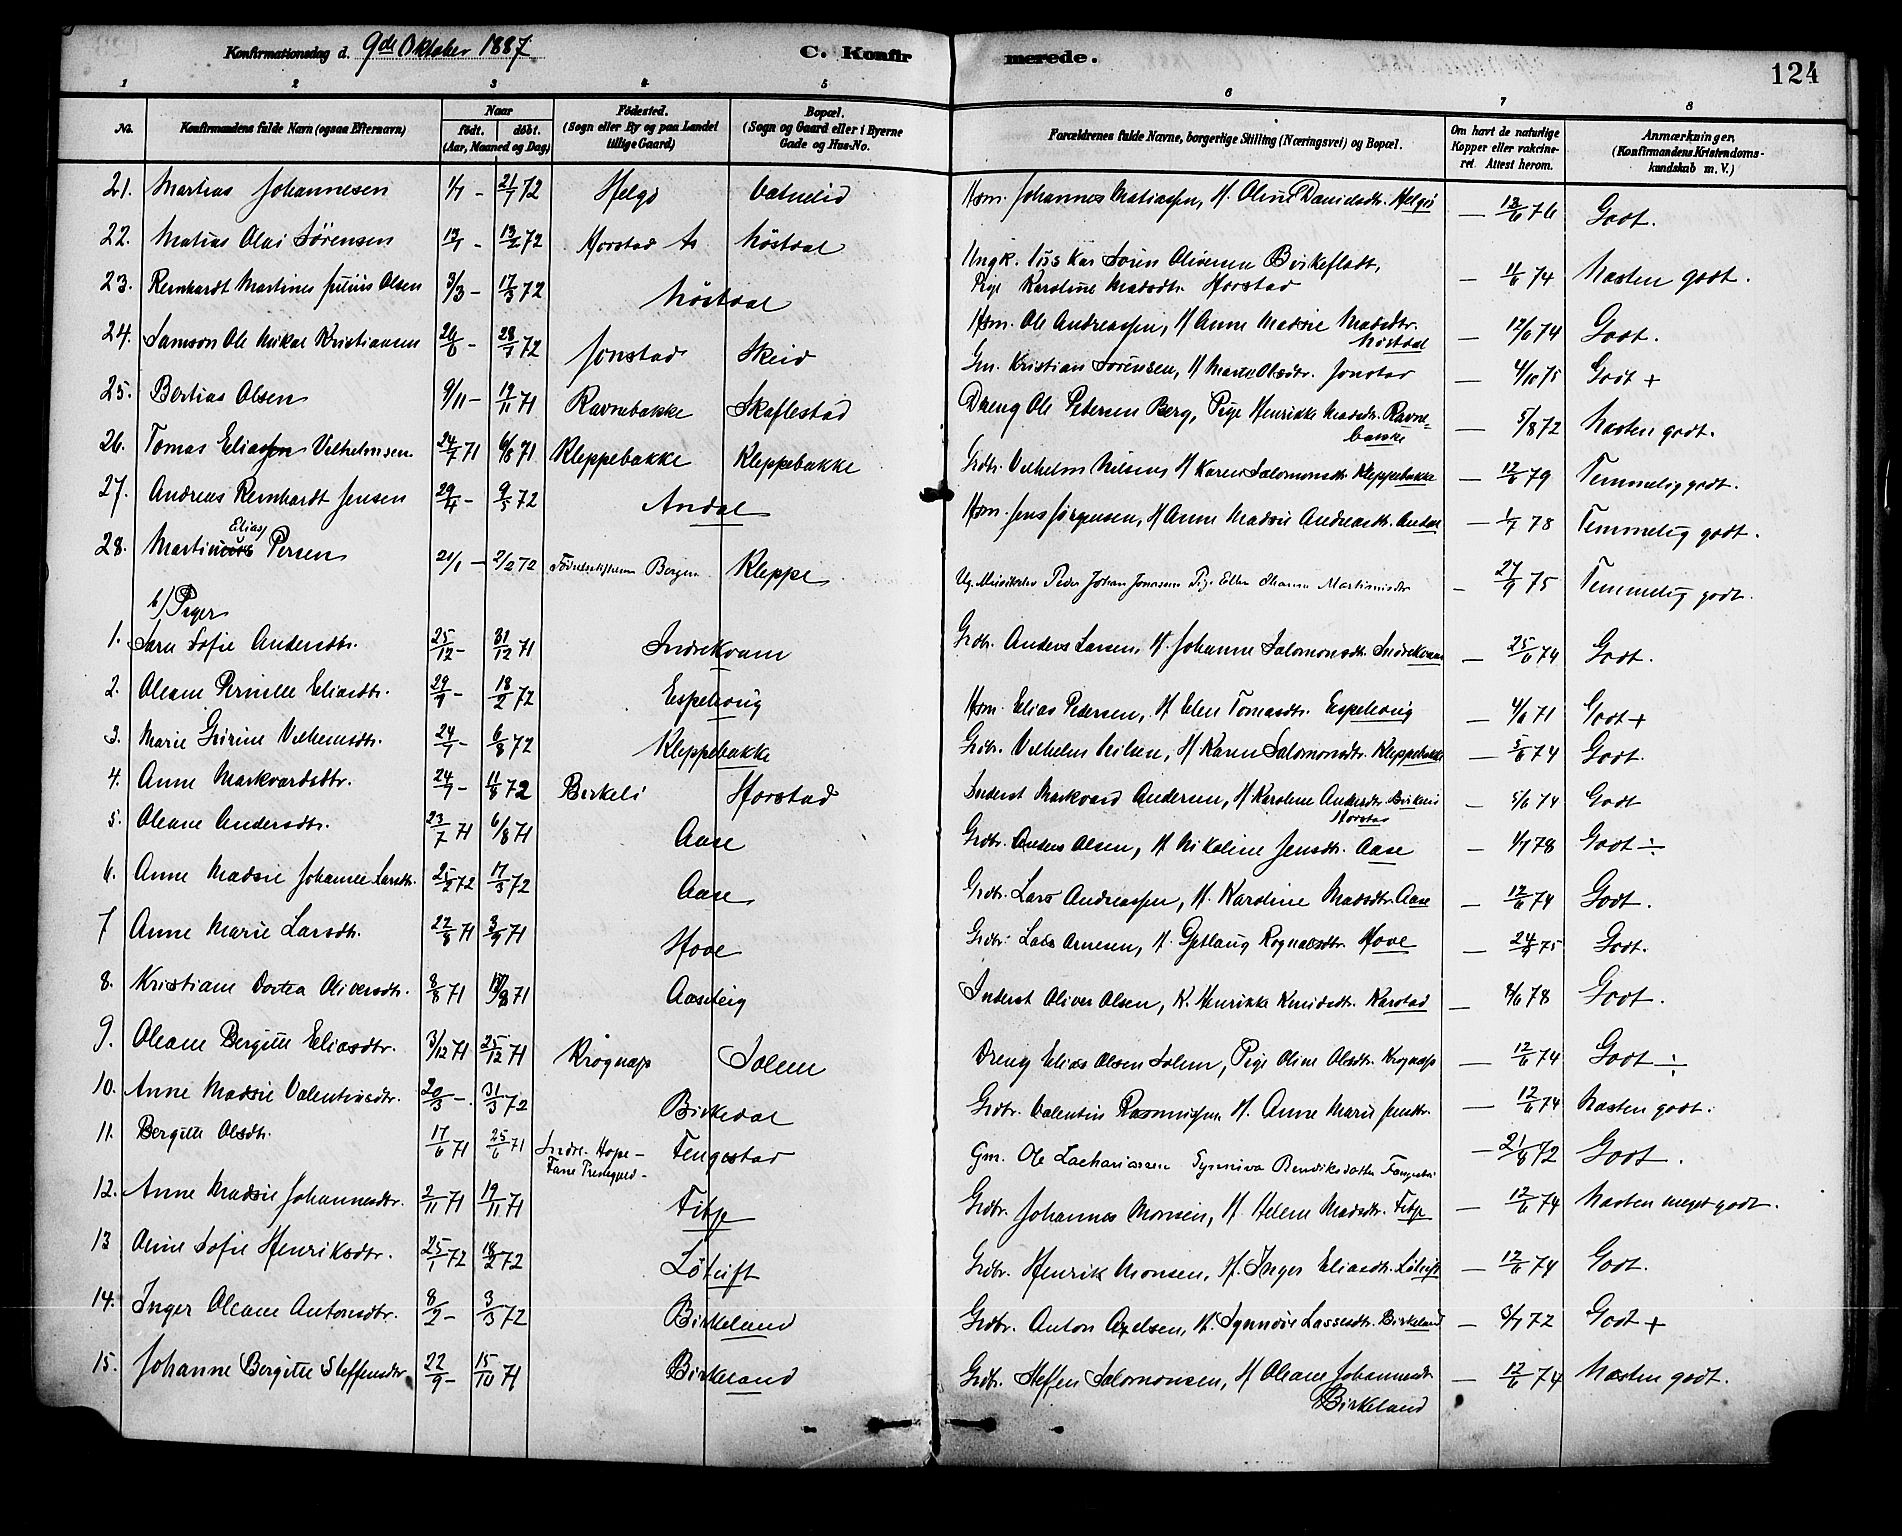 Konfirmationsdag d. 9de Oktober 1887 C. Konfirmerede. 124
1 2 3 4 5 6 7 8
No. Konfirmandens fulde Navn (ogsaa Efternavn) Naar født. døbt. (Aar, Maaned og Dag) Fødested. (Sogn eller By og paa Landet tillige Gaard) Bopæl. (Sogn og Gaard eller i Byerne Gade og Hus-No. Forældrenes fulde Navne, borgerlige Stilling (Næringsvei) og Bopæl. Om havt de naturlige Kopper eller vakcineret. Attest herom. Anmærkninger. (Konfirmandens Kristendomskundskab m. V.)
21. Martias Johannesen 1/7 – 21/7 72 Helgø Johannes Matiassen, H. Oline Danielsdtr. Helgø – 18/6 76 Godt.
22. Matias Olai Sørensen – 13/2 72 Horstad Nøstdal Ungk. Søren Oliversen Birkefladt,
Pige Karoline Madsdtr. Horstad – 11/6 74 Næsten godt.
23. Reinhardt Martines Julius Olsen 3/3 – 17/3 72 Nøstdal Hsm. Ole Andreassen, H Anne Madsie Madsdtr.
Nøstdal – 12/6 74 Godt.
24. Samson Ole Mikal Kristiansen – 28/7 72 Jonstad Skeid Gm. Kristian Sørensen, H Marte Olsdtr. Jonstad – 4/10 75 Godt +
25. Bertias Olsen 9/11 – 19/11 71 Ravnebakke Skaflestad Dreng Ole Pedersen Berg, Pige Henrikke Madsdtr. Ravne-
bakke – 5/8 72 Næsten godt.
26. Tomas Eliassen Vilhelmsen 24/7 71 6/8 71 Kleppebakke Kleppebakke Grdbr. Vilhelm Nilsen, H Karen Salomonsdtr. Kleppebakke – 12/6 79 Temmelig godt.
27. Andreas Reinhardt Jensen 29/4 – 9/5 72 Andal Hsm. Jens Jørgensen, H Anne Madsie Andreasdtr. Andal – 1/7 78 Temmelig godt.
Elias
28. Martinus Persen 21/1 – 2/2 72 Fødselsstiftelsen Bergen Kleppe Ug. Peder Johan Jonassen Pige Ellen Martinusdtr – 27/9 75 Temmelig godt.
b) Piger
1. Sara Sofie Andersdtr. 25/12 – 31/12 71 Indrekvam Grdbr. Anders Larsen, H. Johanne Salomonsdtr. Indrekvam – 25/6 74 Godt.
2. Oleane Pernille Eliasdtr. – 18/2 72 Espehovig Hsm. Elias Pedersen, H Elen Tomasdtr. Espehovig – 4/6 71 Godt +
3. Marie Grinine Vilhemsdtr. 24/7 – 6/8 72 Kleppebakke Grdbr. Vilhelm Nilsen, H Karen Salomonsdtr. Kleppebakke – 5/6 74 Godt.
4. Anne Markvardsdtr. 24/7 – 11/8 72 Birkeli Horstad Inderst Markvard Andersen, H Karoline Andersdtr. Birkeli
Horstad – 5/6 74 Godt
5. Oleane Andersdtr. 23/7 71 6/8 71 Aase Grdbr. Anders Olsen, H. Nikoline Jensdtr. Aase – 1/7 78 Godt ÷
6. Anne Madsie Johanne Larsdtr. 25/2 72 17/3 72 Aase Grdbr. Lars Andreassen, H. Karoline Madsdtr. Aase – 12/6 74 Godt.
7 Anne Marie Larsdtr. 22/8 71 3/9 71 Hove Grdbr. Lars Arnesen, H. Gjetlaug Rognaldsdtr. Hove – 24/9 75 Godt.
8. Kristiane Dortea Oliversdtr. 8/8 71 13/8 71 Aaseteig Inderst Oliver Olsen, H. Henrikke Knudsdtr. Karstad – 8/6 78 Godt.
9. Oleane Bergitte Eliasdtr. 3/12 71 25/12 71 Krognæs Solem Dreng Elias Olsen Solem, Pige Oline Olsdtr. Krognæs – 12/6 74 Godt ÷
10. Anne Madsie Valentinsdtr. 20/3 –. 31/3 72 Birkedal Grdbr. Valentin Rasmussen H. Anne Marie Jensdtr. – 12/6 74 Næsten godt.
11. Bergitte Olsdtr. 17/6 71 25/6 71 Indre-Hope-
Fane Prestegjeld- Tengestad Gm. Ole Zachariassen Synneva Bendiksdatter – 21/8 72 Godt.
12. Anne Madsie Johannesdtr. 2/11 71 19/11 71 Fitje Grdbr. Johannes Monsen, H. Helene Madsdtr. Fitje – 12/6 74 Næsten meget godt.
13 Oline Sofie Henriksdtr. 25/1 72 18/2 72 Løtuft Grdbr. Henrik Monsen, H. Inger Eliasdtr. Løtuft – 12/6 74 Godt.
14. Inger Oleane Antonsdtr. 8/2 – 3/3 72 Birkeland Grdbr. Anton Axelsen, H. Synnøve Lassesdtr. Birkeland – 3/7 72 Godt +
15. Johanne Bergitte Steffensdtr 22/9 – 15/10 71 Birkeland Grdbr. Steffen Salomonsen, H Oleane Johannesdtr.
Birkeland – 12/6 74 Næsten godt.